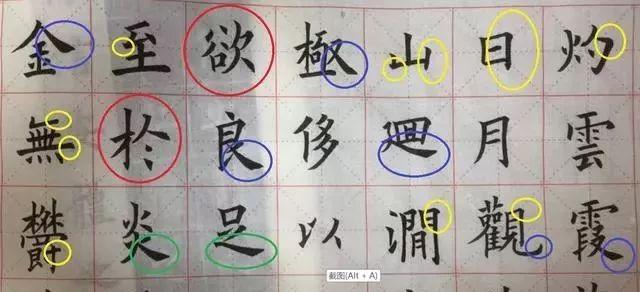 灼雲霞
日月觀
山廻澗
極侈以
欲良足
至於炎
金無鬱
截图(Alt + A)